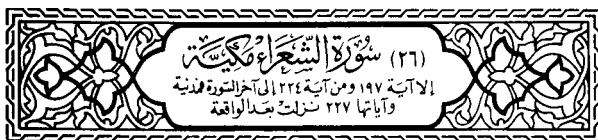 (٢٦) سُورَةُ الشُّعَرَاءِ مَكيَّة
إلا آية ١٩٧ ومن آية ٢٢٤ إلى آخر السورة فمدنية
وآياتها ٢٢٧ نزلت بعد الواقعة